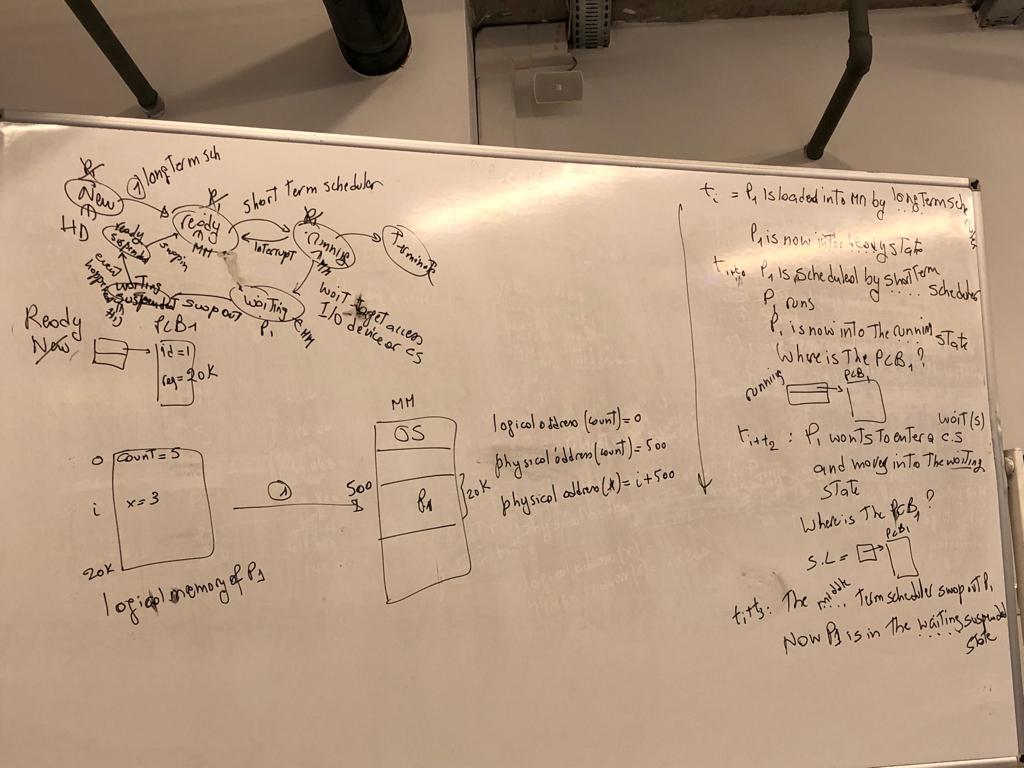 New
① long term sch
HD
ready
MM
short term scheduler
Interrupt
running
MM
Terminate
Ready suspended
swapin
waiting suspended
swapout
waiting
P1
MM
wait to get access
I/O device or CS
Ready
New
PCB1
id=1
req=20K
0
count=5
i
x=3
20K
logical memory of P1
①
MM
OS
500
P1
20K
logical address (count)=0
physical address (count)=500
physical address (x)=i+500
ti = P1 is loaded into MM by long term sch
P1 is now in the ready state
P1 is scheduled by short term scheduler
P1 runs
P1 is now into the running state
Where is the PCB1?
running
PCB1
ti+t2: P1 wants to enter a C.S
wait(s)
and moves into the waiting
state
Where is the PCB1?
PCB1
S.L=
ti+t3: The middle term scheduler swap out P1
Now P1 is in the waiting suspended
state